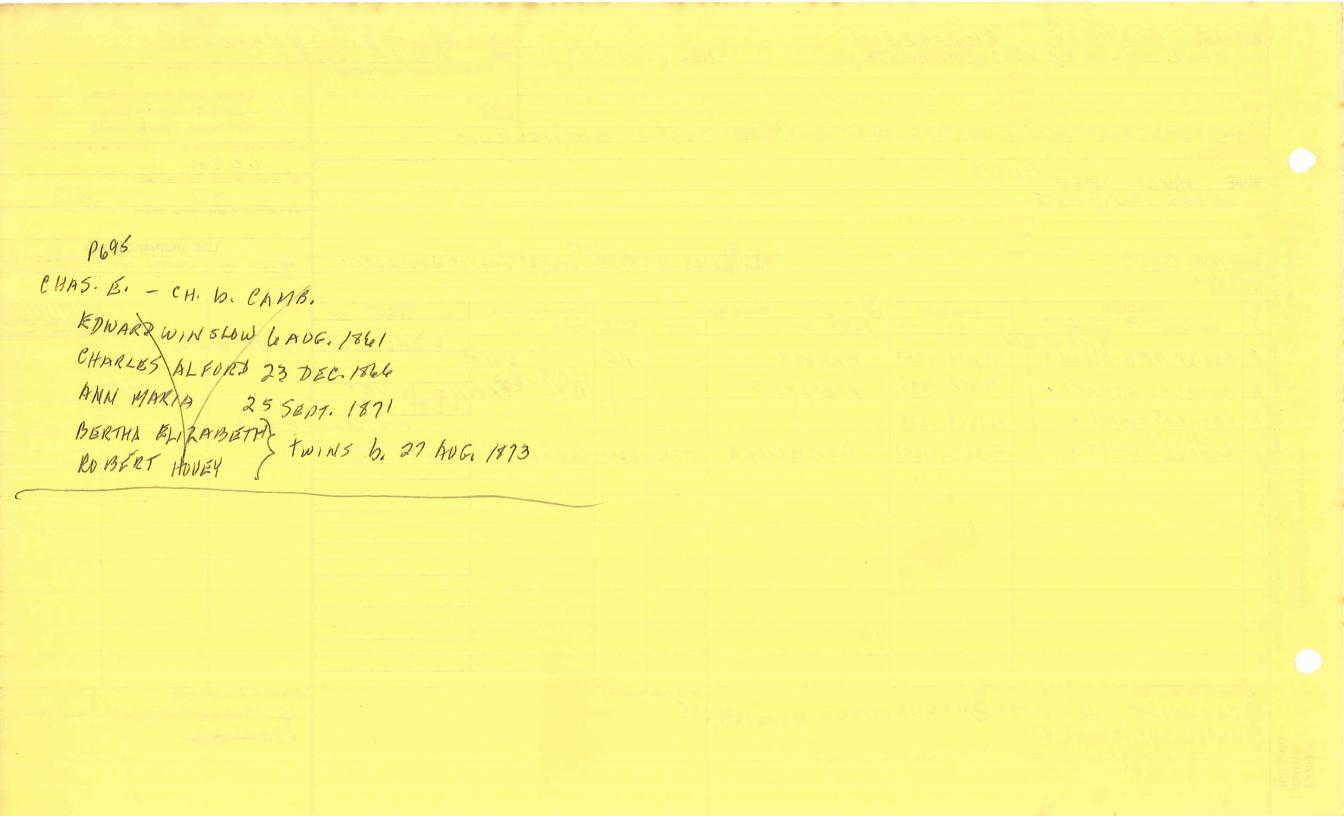 P695
CHAS. E. - CH. b. CAMB.
EDWARD WINSLOW 6 AUG. 1861
CHARLES ALFORD 23 DEC. 1866
ANN MARIA 25 SEPT. 1871
BERTHA ELIZABETH
ROBERT HOVEY } TWINS b. 27 AUG. 1873